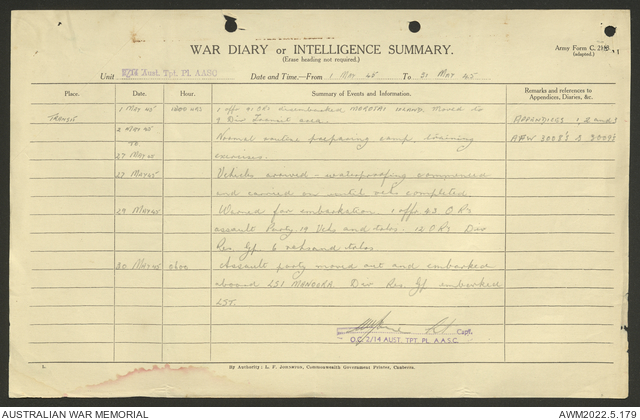 WAR DIARY or INTELLIGENCE SUMMARY.
(Erase heading not required.)
Army Form C. 2118.
(adapted.)
Unit Aust. Tpt. Pl. AASC Date and Time.—From 1 MAY 45 To 31 MAY 45
Place. Date. Hour. Summary of Events and Information. Remarks and references to Appendices, Diaries, &c.
TRANSIT 1 MAY 45 1 offr 61 ORs disembarked MOROTAI ISLAND. Moved to
9 Div Transit area. APPENDICES 1, 2 and 3
2 MAY 45 Normal routine preparing camp, training AFW 3008's & 3009's
TO
27 MAY 45 exercises.
27 MAY 45 Vehicles arrived - waterproofing commenced
and carried on until vehs completed.
29 MAY 45 Warned for embarkation. 1 offr 63 ORs
assault Party 19 Vehs and tlrs. - 12 ORs Div
Res. Gp 6 vehs and tlrs
30 MAY 45 0600 Assault party moved out and embarked
aboard LSI MANOORA. Div Res. Gp embarked
LST.
Capt.
O.C. 2/14 AUST. TPT. PL A.A.S.C.
1.
By Authority: L. F. Johnston, Commonwealth Government Printer, Canberra.
AUSTRALIAN WAR MEMORIAL
AWM2022.5.179